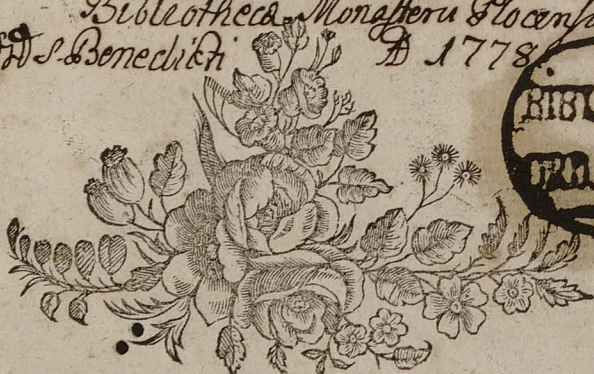 Bibliothecæ Monasterii Plocensis
S. Benedicti AD 1778
BIB